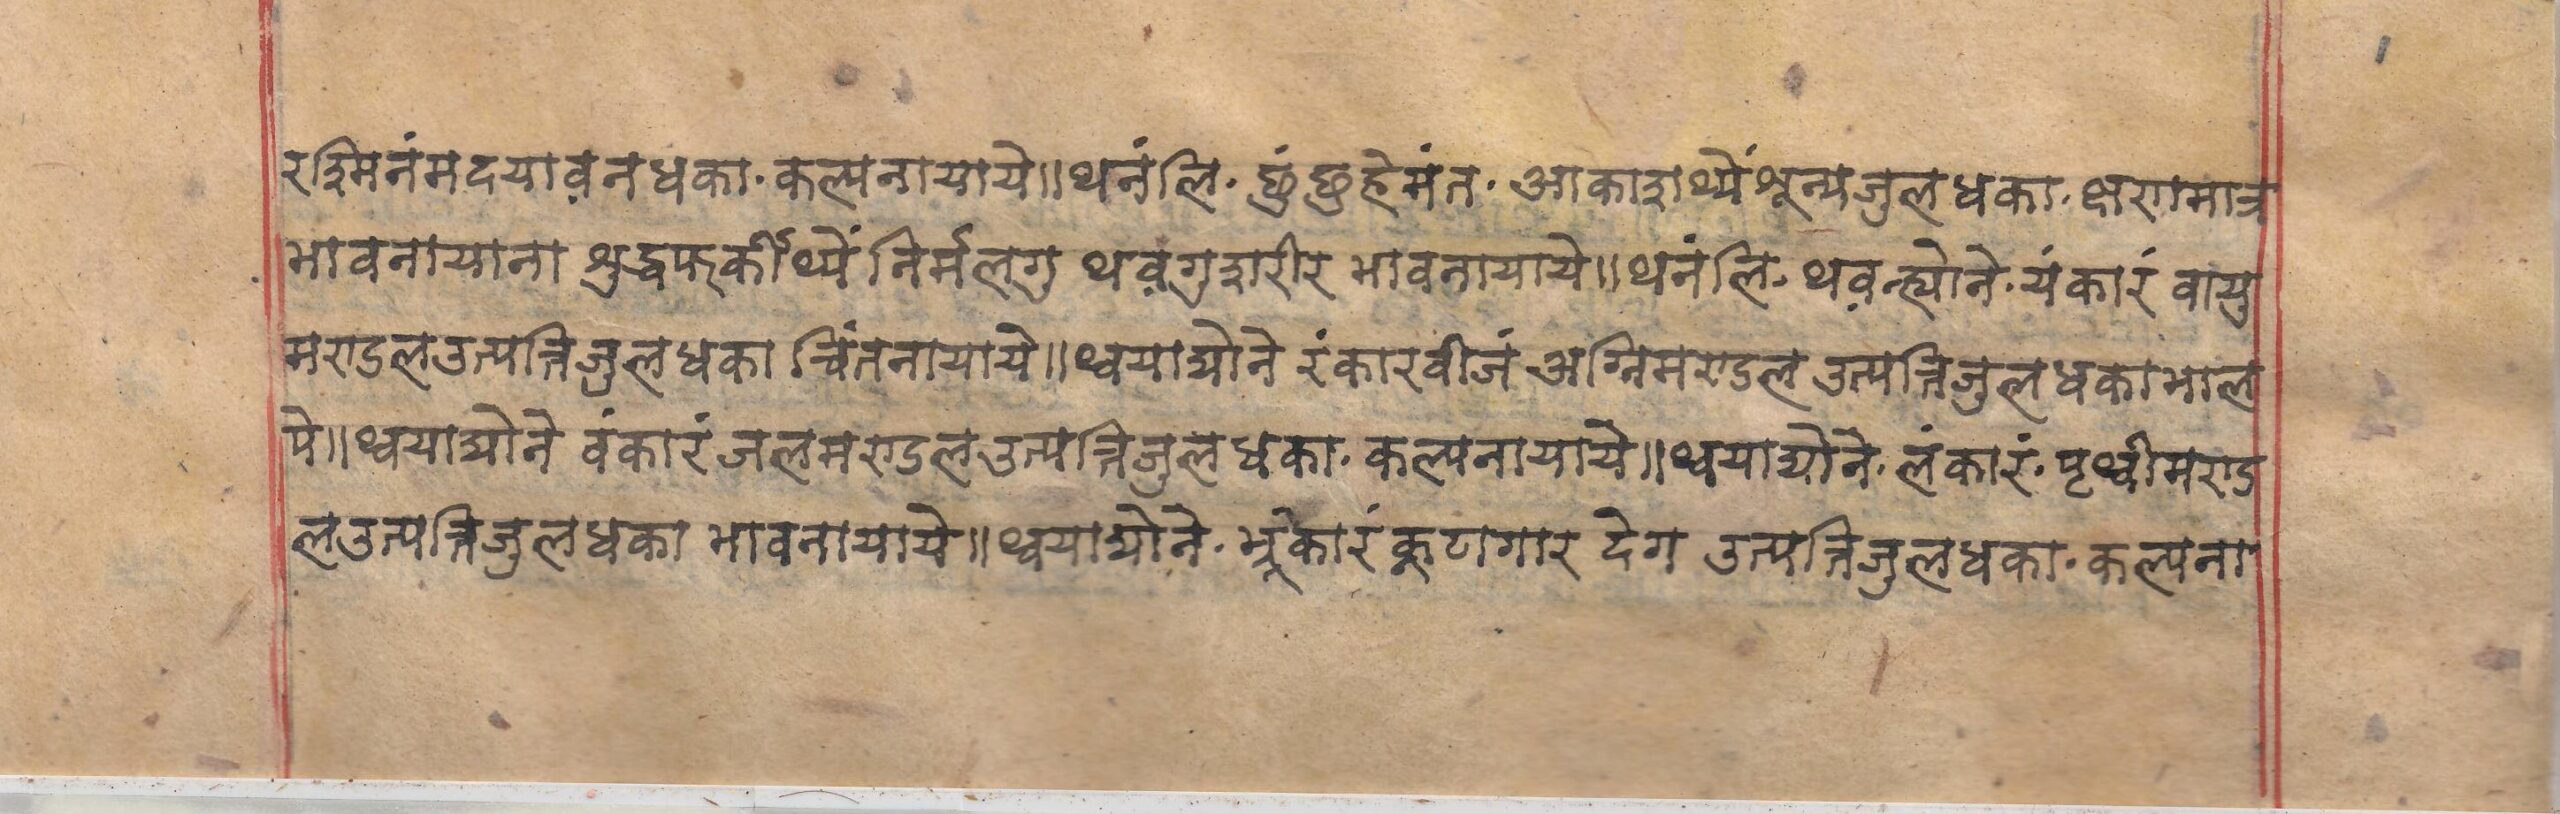 रश्मिनंमदयाव़नधका· कल्पनायाये॥थनंलि· छुंछुहेमंत· आकाशथ्यें श्रून्यजुलधका· क्षणमात्र
भावनायाना श्रुद्धफर्कीथ्यें निर्मलगु थव़गुशरीर भावनायाये॥थनंलि· थव़न्ह्योने· यंकारं वायु
मण्डलउत्पत्तिजुलधका चिंतनायाये॥थ्वयाद्योने रंकारवीजं अग्निमण्डल उत्पत्तिजुलधकाभाल
पे॥थ्वयाद्योने वंकारं जलमण्डलउत्पत्तिजुलधका· कल्पनायाये॥थ्वयाद्योने· लंकारं· पृथ्वीमण्ड
लउत्पत्तिजुलधका भावनायाये॥थ्वयाद्योने· भ्रूंकारं कूटागार देग उत्पत्तिजुलधका· कल्पना